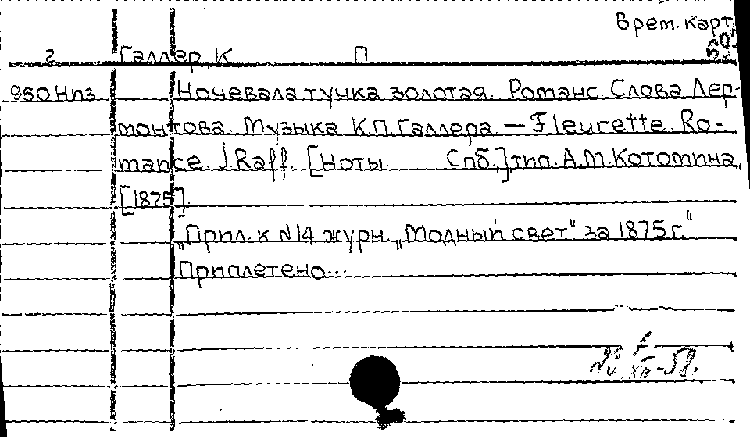 Врем. карт.
2 Галлер, К П
960Нпз Ночевала тучка золотая. Романс. Слова Лер-
монтова. Музыка К.П. Галлера. — Fleurette. Ro-
mance. J. Raff. [Ноты Спб.], тип. А.М. Котомина,
[1875].
„Прил. к №14 журн. „Модный свет" за 1875 г."
Приплетено...